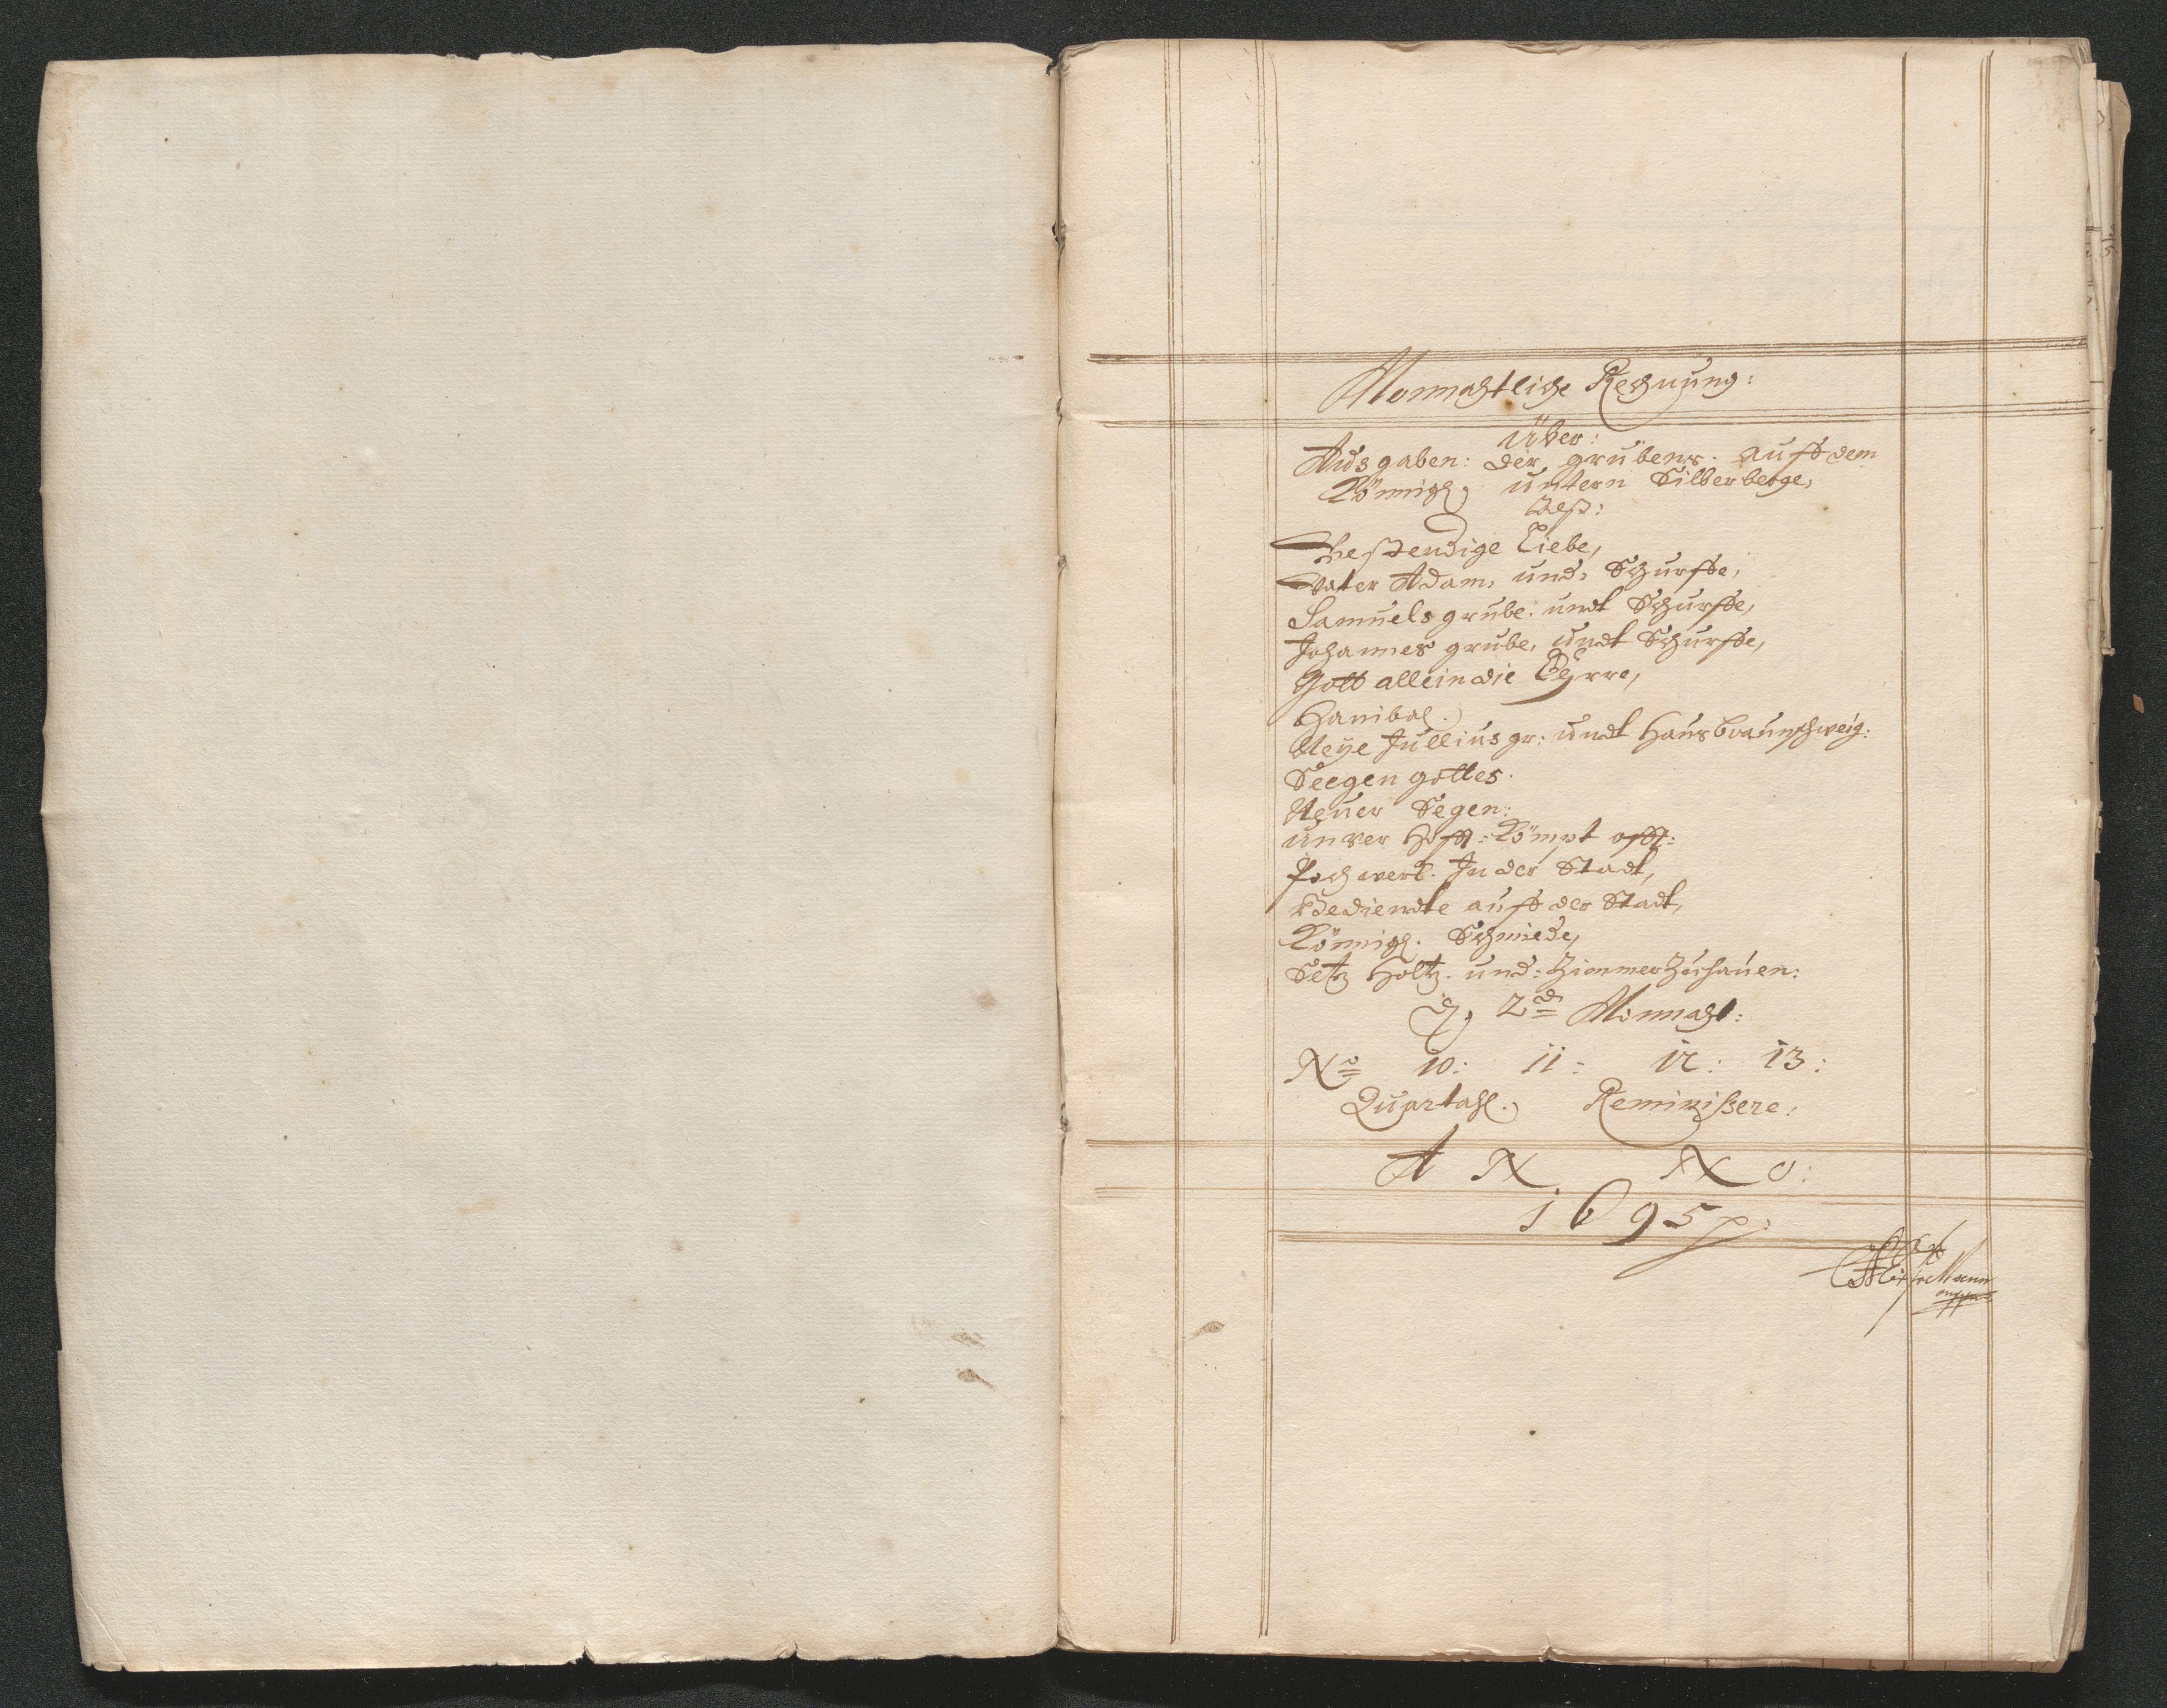 Monnahtliche Rechnung:
Über:
Ausgaben: der grubens. auff dem
Könnigl: untern Silberberge,
Als:
Bestendige Liebe,
Vater Adam, und, Schurffe,
Samuels grube: undt Schurffe,
Johannes grube, undt Schurffe,
Gott allein die Ehrre,
Hanibal.
Neye Jullius gr: undt Haus braunschweig:
Seegen gottes.
Neuer Segen:
unser Hoff: Kömpt offt:
Pochwerk. In der Stadt,
Bediendte auff der Stadt,
Könnigl. Schmiede,
Setz Holtz. und: Zimmer Zuhauen:
2 Monnaht:
No 10: 11: 12: 13:
Quartahl. Reminissere:
A N N O:
1695